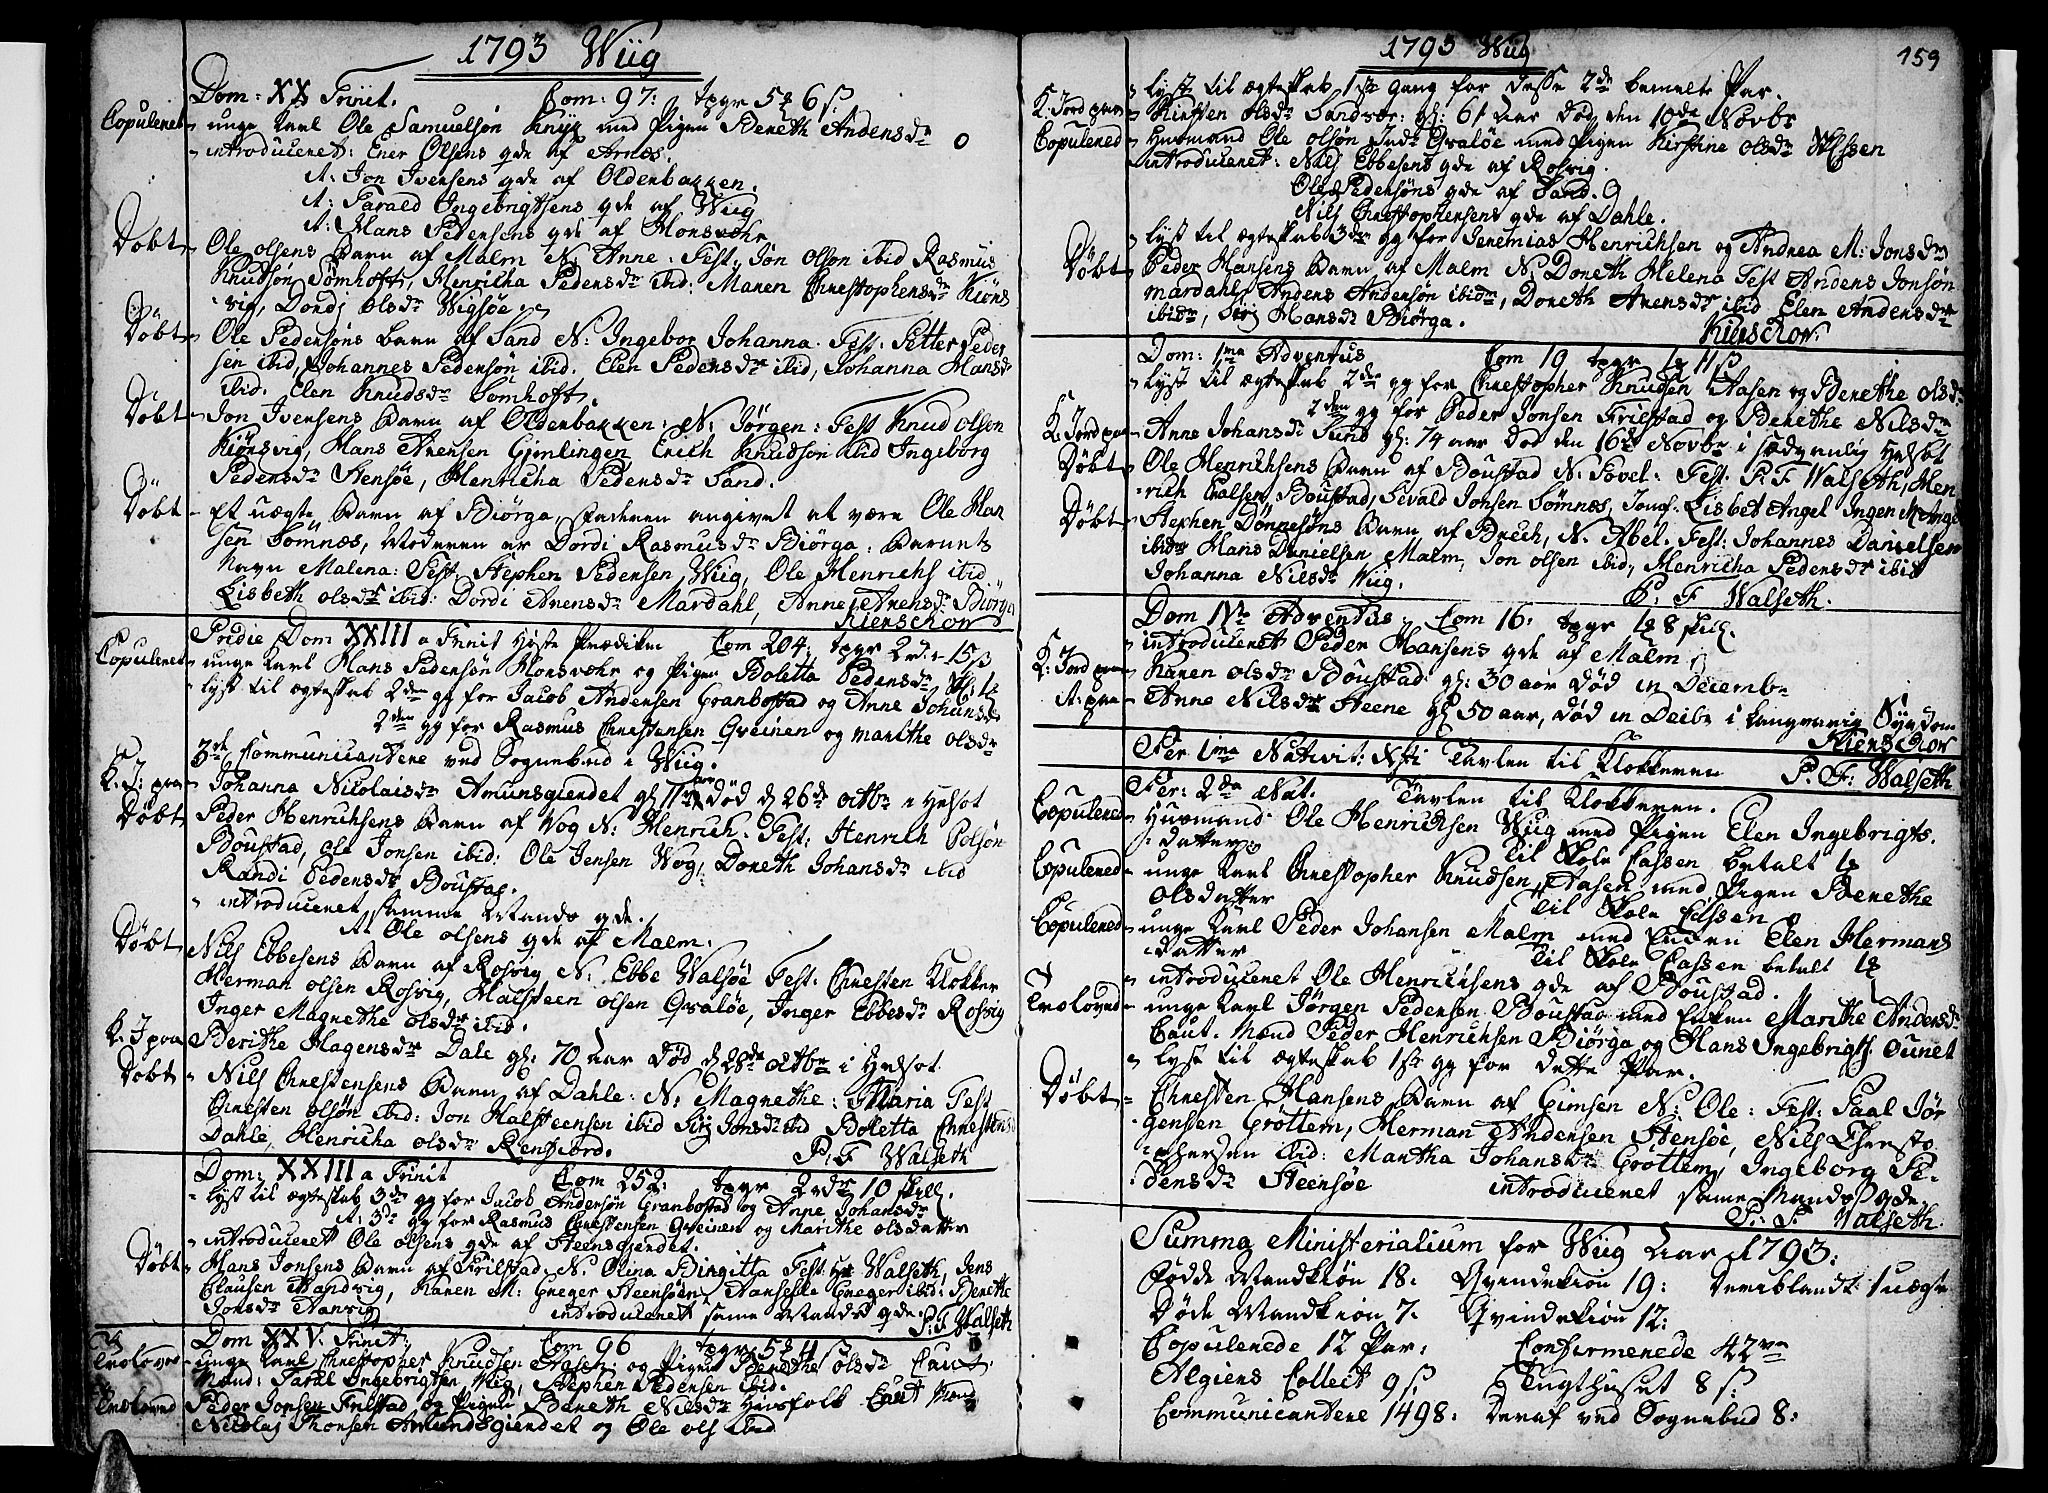 1793 Wiig
Dom: XX Trinit. Com: 97: tpgr 5 6 s.
Copuleret - unge Karl Ole Samuelsøn med Pigen Bereth Andersdr
- introduceret: Ener Olsens qde af Arnæs.
A: Jon Iversens qde af Oldenbakken.
A: Tarald Ingebrigtsens qde af Wiig
A: Hans Pedersens qde af
Døbt - Ole olsens Barn af Malm N: Anne: Test: Jon olsen ibid Rasmus
Knudsøn Sømhoft, Henricha Pedersdr ibid: Maren Christophersdr Kiøns
vig, Dordi olsdr Wigsøe.
Døbt - Ole Pedersøns Barn af Sand N: Ingebor Johanna. Test: Petter Peder
sen ibid, Johannes Pedersøn ibid. Elen Pedersdr ibid, Johanna Hansdr
ibid. Elen Knudsdr Sømhoft.
Døbt - Jon Iversens Barn af Oldenbakken: N: Jørgen: Test Knud olsen
Kiønsvig, Hans Arensen Gimlingen Erich Knudsøn ibid Ingeborg
Pedersdr Stensøe, Henricha Pedersdr Sand.
Døbt - Et uægte Barn af Biørga, Faderen angivet at være Ole Han
sen Sømnæs, Moderen er Dordi Rasmusdr Biørga: Barnets
Navn Malena: Test: Stephen Pedersen Wiig, Ole Henrichs ibid
Lisbeth olsdr ibid: Dordi Arensdr Mardahl, Anne Arensdr Biørga
Kierschow
Pridie Dom XXIII a Trinit Høste Prædiken Com 204: tpgr 2rdr 15 s
Copuleret - unge Karl Hans Pedersøn og Pigen Boletta Pedersdr
- lyst til ægteskab 2den gg for Jacob Andersen Granbostad og Anne Johansdr
2den gg for Rasmus Christensen Qveinen og marithe olsdr
3de Communicantere ved Sognebud i Wiig.
K: J: paa - Johanna Nicolaisdr Amunsgiendet gl 11 aar død d 26de octbr i Helsot
Døbt Peder Henrichsens Barn af Vog N: Henrich. Test: Henrich Polsøn
Boustad, Ole Jonsen ibid: Ole Jensen Wog, Doreth Johansdr ibid
Randi Pedersdr Boustad.
- introduceret samme Mands qde.
A: Ole olsens qde af Malm.
Døbt Nils Ebbesens Barn af Rosvig N: Ebbe Walsøe Test: Christen Klokker
Herman olsen Rosvig, Halsteen olsen Qvaløe, Inger Ebbesdr Rosvig
Inger Magnethe olsdr ibid.
K: J paa Berithe Hagensdr Dale gl: 70 aar død d 28de octbr i Helsot
Døbt - Nils Christensens Barn af Dahle: N: Magnethe: Maria Test
Christen olsøn ibid: Jon Halsteensen ibid Sirj Jonsdr ibid Boletta Christensd
Dahle, Henricha olsdr Rensiord.
P: F Walseth
Dom: XXIII a Trinit Com 252: tpgr 2rdr 10 skill.
- lyst til ægteskab 3de gg for Jacob Andersøn Granbostad og Anne Johansdr
A: 3de gg for Rasmus Christensen Qveinen og Marithe olsdatter
- introduceret Ole olsens qde af Steensgiendet.
Døbt - Hans Jonsens Barn af Frilstad. N: Olina Birgitta Test: Walseth, Jens
Clausen Handvig, Karen M: Greger Steensøen, Greger ibid: Berette
Jonsdr Hanvig introduceret samme Mands qde.
P: F Walseth
Dom XXV. Trinit: Com 96 tpgr 5 4 s
Trolovet - unge Karl Christopher Knudsen Aasen: og Pigen Berethe olsdr Caut:
Mænd: Taral Ingebrigtsen Wiig, Stephen Pedersen ibid.
Trolovet Peder Jonsen Frilstad og Pigen Bereth Nilsdr Husfolk Caut Mænd
Nicolaj Thorsen Amundsgiendet og Ole ols ibid
1793 Wiig
159
- lyst til ægteskab 1ste gang for desse 2de bemelte Par.
K: Jord paa - Kirsten olsdr Sandvær: gl: 61 aar død den 19de Novbr
Copulered - Husmand Ole olsøn Inde Qvaløe med Pigen Kirstine olsdr
introduceret: Nils Ebbesens qde af Rosvig
Ole Pedersøns qde af Sand.
Nils Christophersens qde af Dahle.
- lyst til ægteskab 3de gg for Jeremias Henrichsen og Andrea M: Jonsdr
Døbt - Peder Hansens Barn af Malm N: Doreth Helena Test Anders Jonsøn
Mardahl, Anders Andersøn ibidm, Doreth Arensdr ibid Elen Andersdr
ibidm, Sirj Hansdr Biørga.
Kierschow.
Dom: 1ma Adventus Com 19 tpgr 1 11 s
- lyst til ægteskab 2de gg for Christopher Knudsen Aasen og Berethe olsdr
2den gg for Peder Jonsen Frilstad og Berethe Nilsdr
K: Jord paa - Anne Johansdr Sund gl: 74 aar død den 16de Novbr i sædvanlig Helsot
Døbt - Ole Henrichsens Barn af Boustad N: Povel: Test. P: F Walseth, Hen
rich Polsen Boustad, Sevald Jonsen Sømnæs, Jomf. Lisbet Angel Inger M Angel
Døbt - Stephen Dønnesøns Barn af Brech, N. Abel. Test: Johannes Danielsen
ibidm Hans Danielsen Malm, Jon olsen ibid, Henricha Pedersdr ibid
Johanna Nilsdr Wiig.
P: F Walseth.
Dom IVta Adventus Com 16: tpgr 8 skil.
- introduceret Peder Hansens qde af Malm
K: Jord paa - Karen olsdr Boustad gl: 30 aar død in Decembr
A: paa - Anne Nilsdr Steene gl 50 aar, død in Decbr i langvarig Sygdom
Kierschow
Fer 1ma Nativit: Xsti Tavlen til Klokkeren P. F: Walseth
Fer: 2da Nat. Tavlen til Klokkeren.
Copulered - Husmand Ole Henrichsen Wiig med Pigen Elen Ingebrigts.
datter Til Skole Cassen betalt
Copulered - unge Karl Christopher Knudsen Aasen med Pigen Berethe
olsdatter Til Skole Cassen
Copulered - unge Karl Peder Johansen Malm med Enken Elen Hermans
datter Til Skole Cassen betalt
- introduceret Ole Henrichsens qde af Boustad.
Troloved - unge Karl Jørgen Pedersen Boustad med Enken Marithe Andersdr
Caut. Mænd Peder Henrichsen Biørga og Hans Ingebrigts. Ounet
- lyst til ægteskab 1ste gg for dette Par.
Døbt - Christen Hansens Barn af Gimsen N: Ole: Test: Paal Jør
gensen Grøttem, Herman Andersen Stensøe, Nils Christo
phersen ibid: Martha Johansdr Grøttem, Ingeborg Pe
dersdr Steensøe introduceret samme Mands qde
P. F. Walseth.
Summa Ministerialium for Wiig Aar 1793:
Fødde Mandkiøn 18: Qvindekiøn 19: deriblandt 1 uægte
Døde Mandkiøn 7. Qvindekiøn 12:
Copulerede 12 Par: Confirmerede 42ve
Algiers Collect 9 s. Tugthuset 8 s:
Communicantere 1498: Deraf ved Sognebud 8: